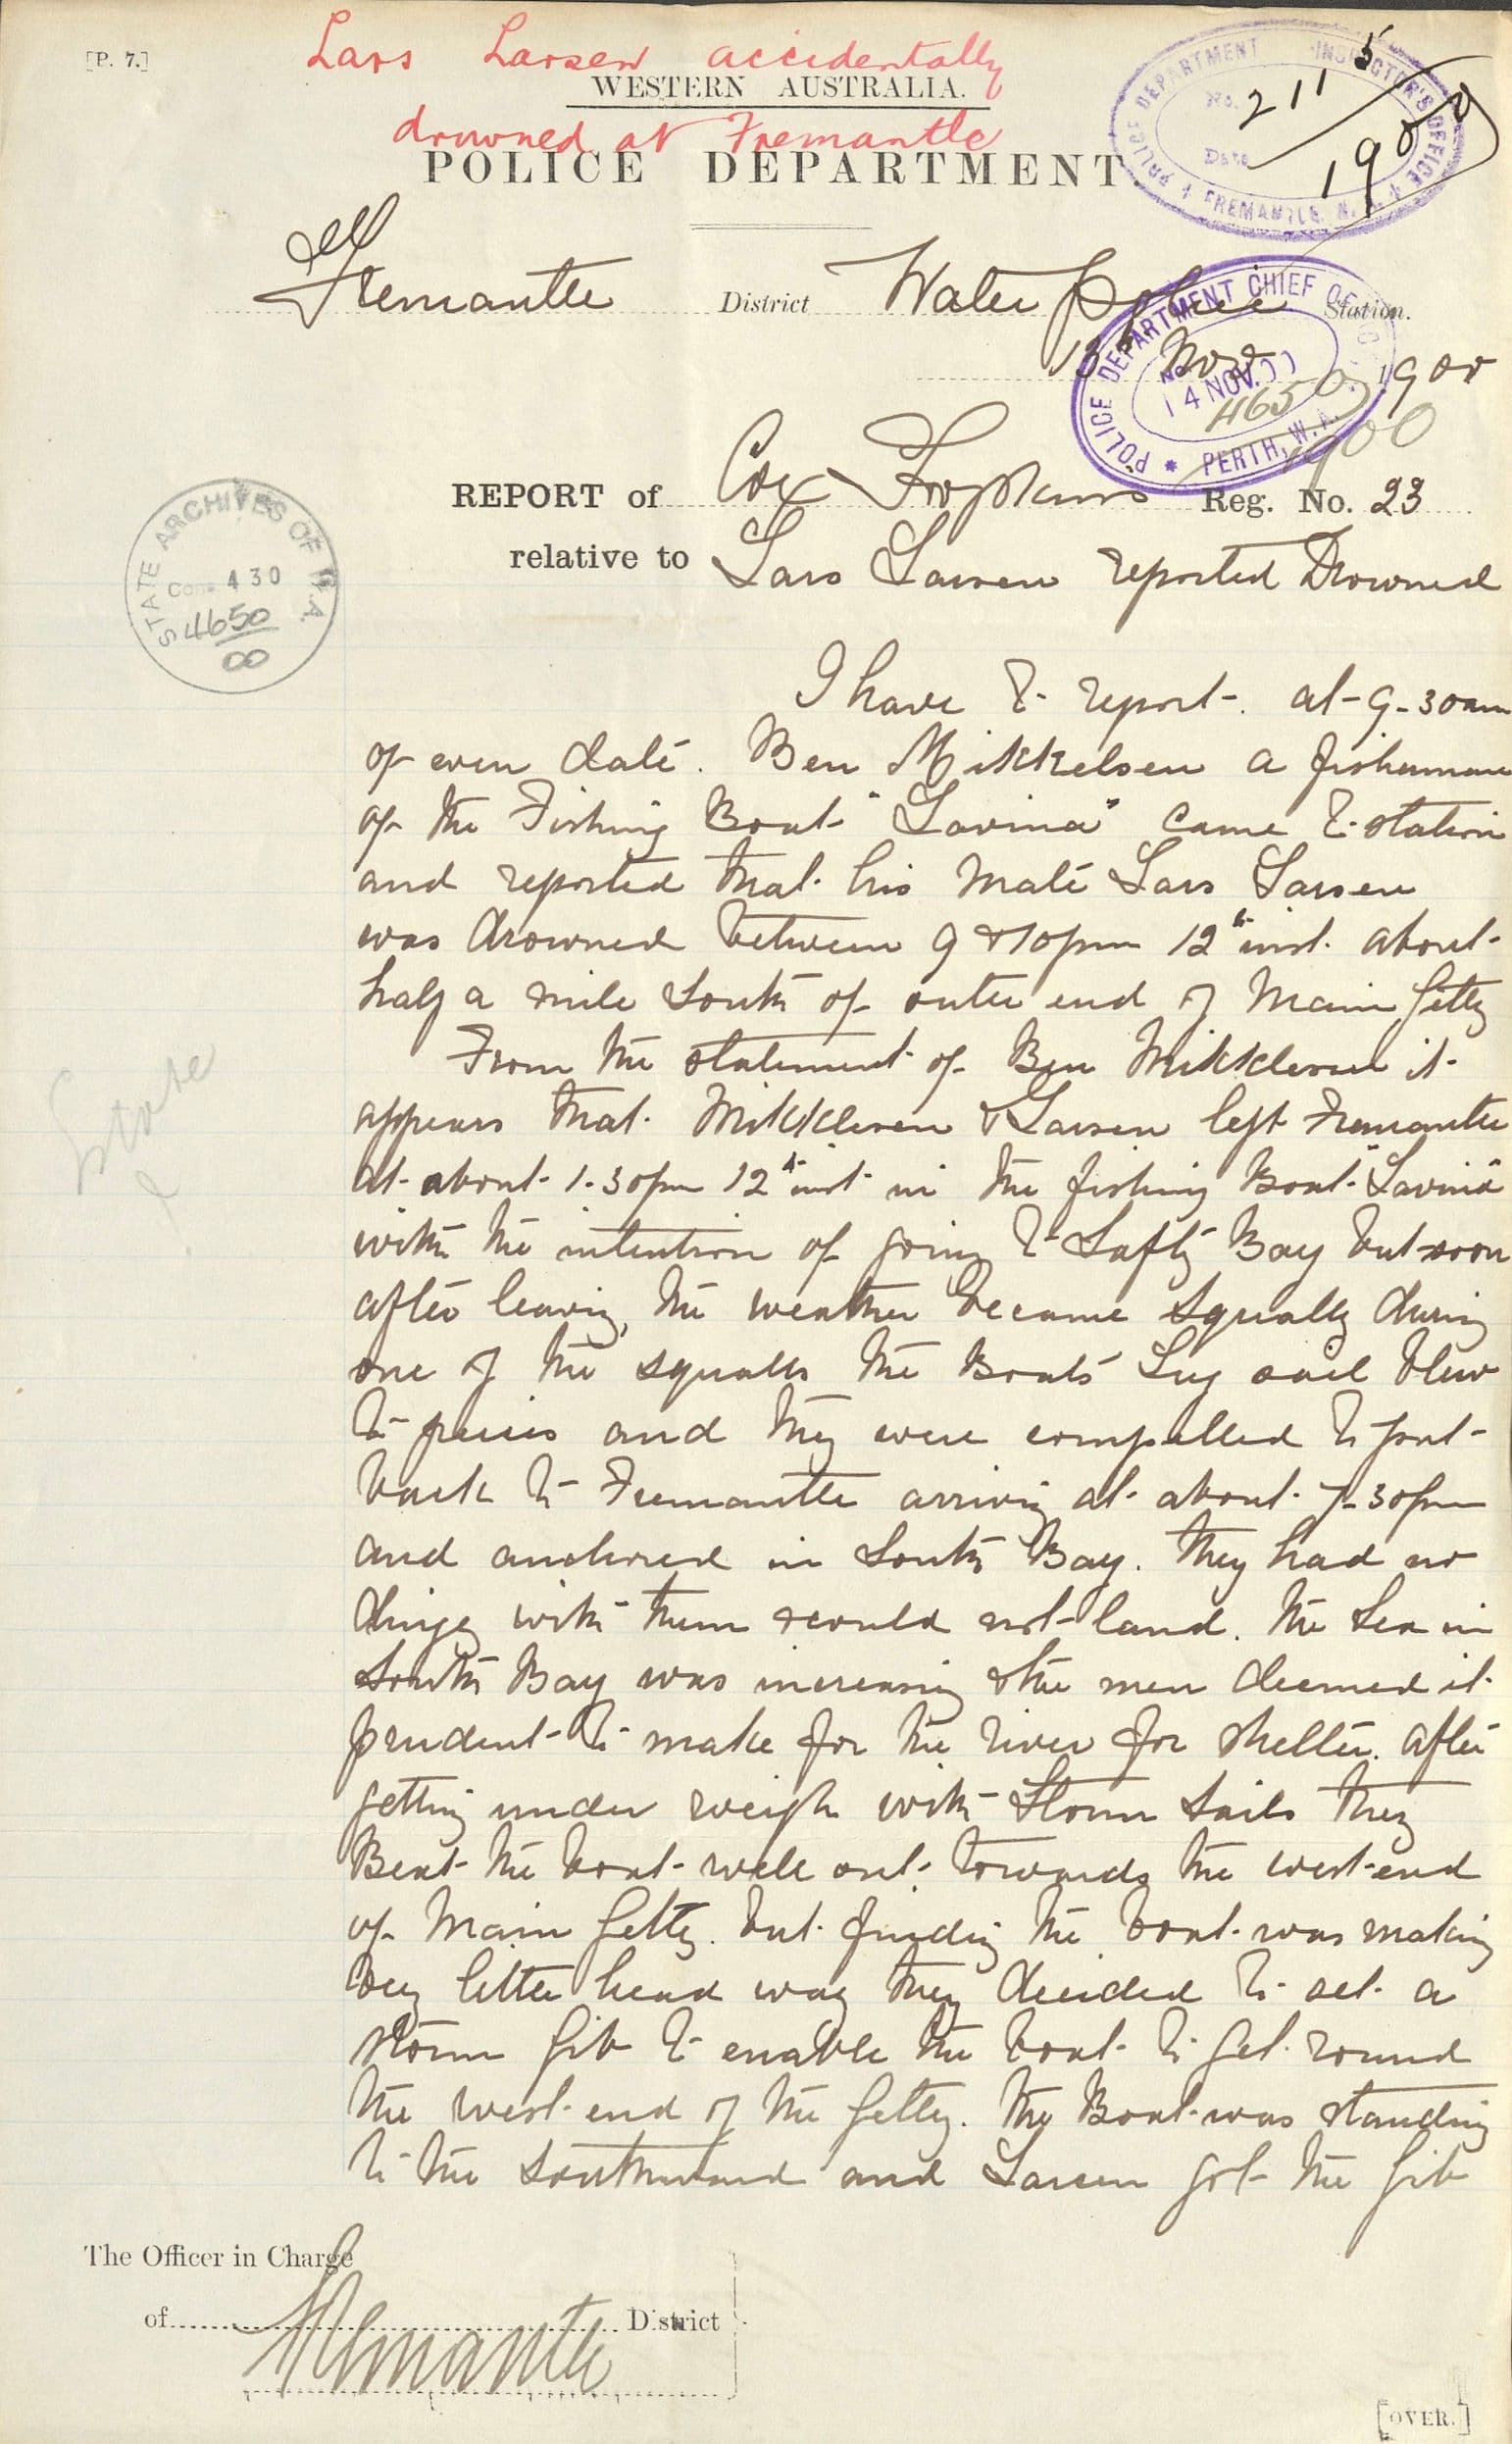 [P. 7.]
Lars Larsen accidentally
WESTERN AUSTRALIA.
drowned at Fremantle
POLICE DEPARTMENT
POLICE DEPARTMENT INSPECTOR'S OFFICE
No. 2115
Date 1900
FREMANTLE W.A.
Fremantle District Water Police Station.
13th Nov 1900
POLICE DEPARTMENT CHIEF OFFICE
No.
14 NOV. 00
4650
1900
PERTH, W.A.
REPORT of Cox Hopkins Reg. No. 23
relative to Lars Larsen reported Drowned
STATE ARCHIVES OF W.A.
Cons 430
4650
00
I have to report. at 9-30am
of even date. Ben Mikkelsen a fisherman
of the Fishing Boat "Lavina" came to station
and reported that his mate Lars Larsen
was drowned between 9 & 10pm 12th inst. about
half a mile South of outer end of Main Jetty
From the statement of Ben Mikklesen it
appears that Mikklesen & Larsen left Fremantle
at about 1.30pm 12th inst in the fishing Boat "Lavina"
with the intention of going to Safty Bay but soon
after leaving, the weather became squally during
one of the squalls the Boats Lug sail blew
to pieces and they were compelled to put
back to Fremantle arriving at about 7-30pm
and anchored in South Bay. They had no
dingy with them & could not land. The Sea in
South Bay was increasing & the men deemed it
prudent to make for the river for shelter. After
getting under weigh with Storm Sails they
Beat the boat well out towards the west end
of Main Jetty. but finding the boat was making
very little head way they decided to set a
storm jib to enable the boat to get round
the west end of the Jetty. The Boat was standing
to the Southward and Larsen got the jib
Store
The Officer in Charge
of Fremantle District
[OVER.]